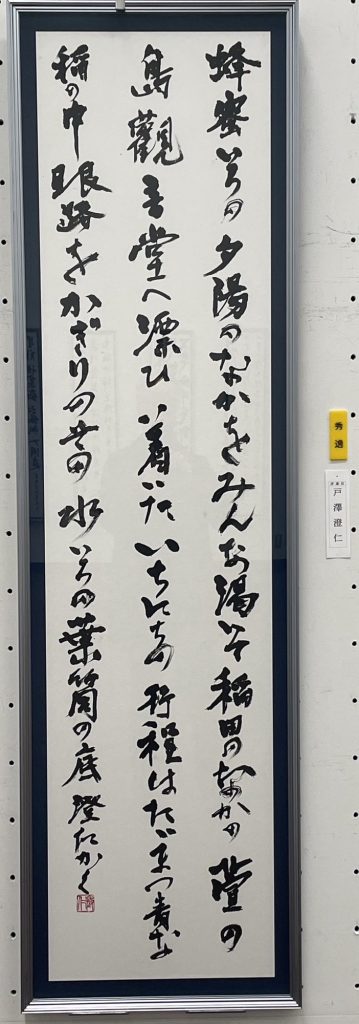 蜂蜜いろの夕陽のなかをみんな渇いて稲田のなかの萱の
島観音堂へ漂ひ着いたいちにちの行程はたゞまつ青な
稲の中眼路をかぎりの
水いろの葉筒の底 澄仁かく
秀逸
戸澤澄仁